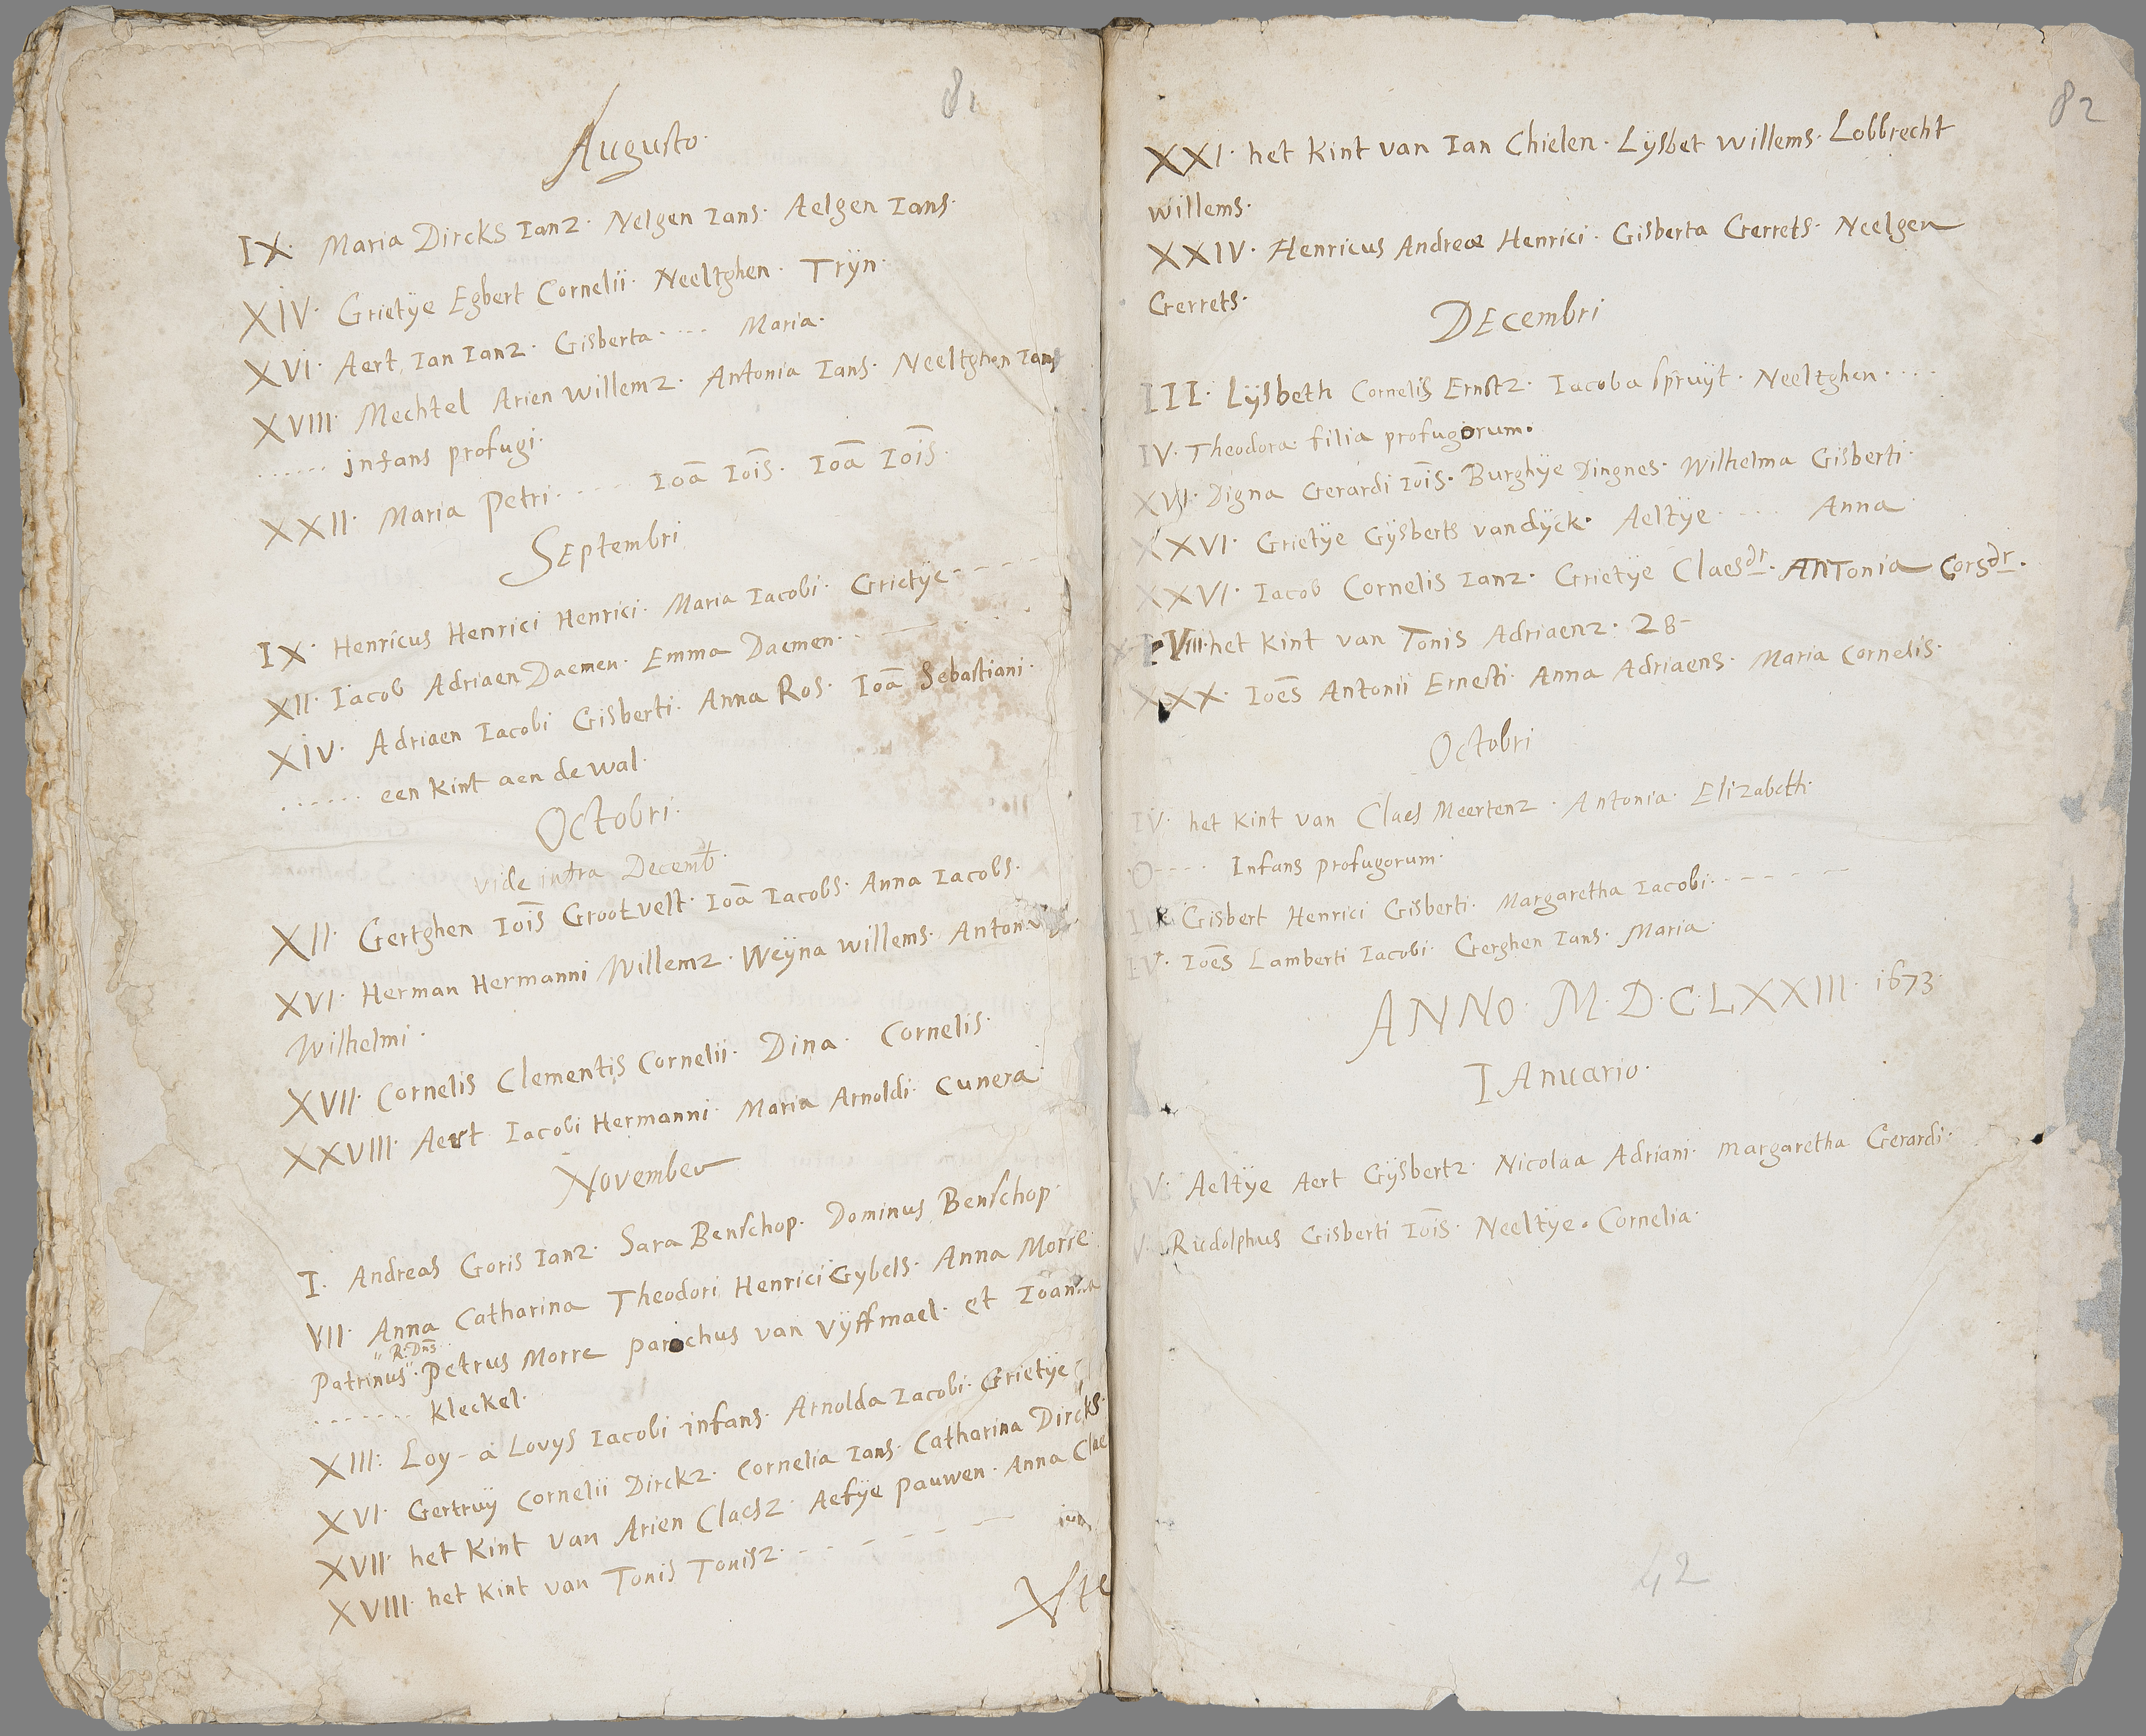 81
Augusto·
IX· Maria Dircks Ianz· Nelgen Ians· Aelgen Ians·
XIV· Grietÿe Egbert Cornelii· Neeltghen· Trÿn·
XVI· Aert Ian Ianz· Gisberta···· Maria·
XVIII· Mechtel Arien Willemz· Antonia Ians· Neeltghen Ians
...... jnfans profugi·
XXII· Maria Petri····· Ioā Iōis· Ioā Iōis·
Septembri
IX· Henricus Henrici Henrici· Maria Iacobi· Grietÿe- - - - -
XII· Iacob Adriaen Daemen· Emma Daemen· ·
XIV· Adriaen Iacobi Gisberti· Anna Ros· Ioā Sebastiani·
...... een kint aen de wal·
Octobri·
vide infra Decemb·
XII· Gertghen Iōis Grootvelt· Ioā Iacobs· Anna Iacobs·
XVI· Herman Hermanni Willemz· Weÿna willems· Anton
Wilhelmi·
XVII· Cornelis Clementis Cornelii· Dina· Cornelis·
XXVIII· Aert Iacobi Hermanni· Maria Arnoldi· Cunera·
November
I· Andreas Goris Ianz· Sara Benschop· Dominus Benschop·
VII· Anna Catharina Theodori Henrici Gybels· Anna Morre·
R: Dns
Patrinus· Petrus Morre parochus van Vÿffmael· et Ioanna
....... kleckel·
XIII: Loy - a Lovys Iacobi infans· Arnolda Iacobi· Grietÿe
XVI· Gertruÿ Cornelii Dirckz· Cornelia Ians· Catharina Dircks·
XVII· het kint van Arien Claesz· Aefÿe Pauwen· Anna Clae
XVIII· het kint van Tonis Tonisz· - - - -
82
XXI· het kint van Ian Chielen· Lÿsbet Willems· Lobbrecht
Willems·
XXIV· Henricus Andreæ Henrici· Gisberta Gerrets· Neelgen
Gerrets·
DEcembri
III· Lÿsbeth Cornelis Ernstz· Iacoba spruÿt· Neeltghen····
IV· Theodora filia profugorum·
XVI· Digna Gerardi Iōis· Burghÿe Dingnes· Wilhelma Gisberti·
XXVI· Grietÿe Gÿsberts vandÿck· Aeltÿe····· Anna
XXVI· Iacob Cornelis Ianz· Grietÿe Claesdr· Antonia Corsdr·
VIII· het kint van Tonis Adriaenz· 28-
XXX· Ioēs Antonii Ernesti· Anna Adriaens· Maria Cornelis·
Octobri
IV· het kint van Claes Meertenz· Antonia· Elizabeth·
O---· Infans profugorum·
Gisbert Henrici Gisberti· Margaretha Iacobi·- - - - -
IV· Ioēs Lamberti Iacobi· Gerghen Ians· Maria·
ANNO· M·D·C·LXXIII· 1673·
IAnuario·
V· Aeltÿe Aert Gÿsbertz· Nicolaa Adriani· Margaretha Gerardi·
V· Rudolphus Gisberti Iōis· Neeltÿe· Cornelia·
42